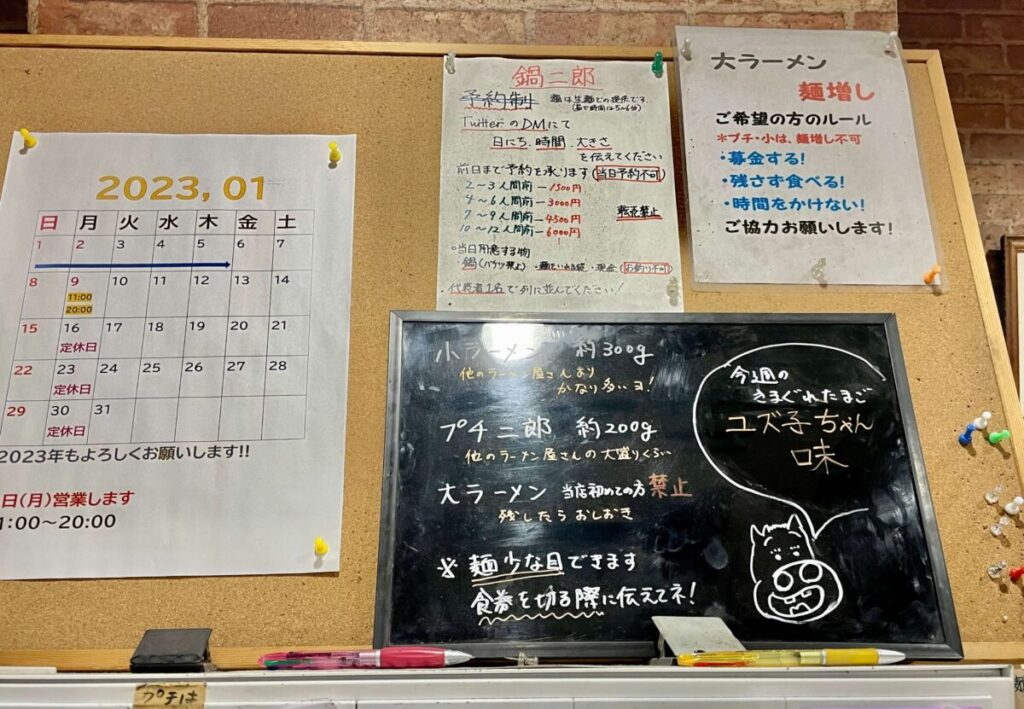 2023, 01
日 月 火 水 木 金 土
1 2 3 4 5 6 7
8 9 10 11 12 13 14
11:00
20:00
15 16 17 18 19 20 21
定休日
22 23 24 25 26 27 28
定休日
29 30 31
定休日
2023年もよろしくお願いします!!
日(月)営業します
1:00~20:00
鍋二郎
予約制
麺は生麺での提供です
TwitterのDMにて
日にち、時間、大きさ
を伝えてください
前日まで予約を承ります(当日予約不可)
2~3人間前ー1500円
4~6人間前ー3000円
7~9人間前ー4500円
10~12人間前ー6000円
転売禁止
・当日用意する物
鍋(バケツ禁止)・麺をいれる袋・現金(お釣り不可)
代表者1名で列に並んでください!
大ラーメン
麺増し
ご希望の方のルール
*プチ・小は、麺増し不可
・募金する!
・残さず食べる!
・時間をかけない!
ご協力お願いします!
小ラーメン 約300g
他のラーメン屋さんより
かなり多いヨ!
プチ二郎 約200g
他のラーメン屋さんの大盛りくらい
大ラーメン 当店初めての方禁止
残したらおしおき
※ 麺少な目できます
食券を切る際に伝えてネ!
今週の
きまぐれたまご
ユズ子ちゃん
味
プチは